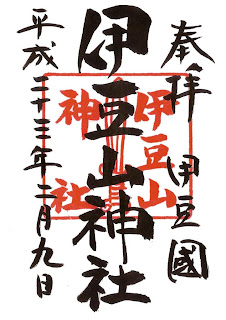 奉拝 伊豆國
伊豆山神社
平成二十三年二月九日
伊豆山
神社